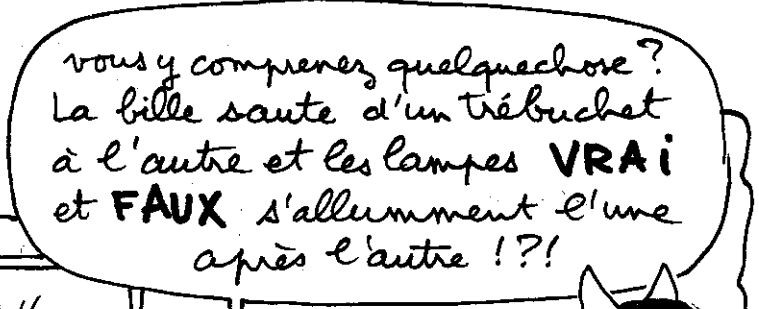 vous y comprenez quelquechose ?
La bille saute d'un trébuchet
à l'autre et les lampes VRAi
et FAUX s'allumment l'une
après l'autre !?!